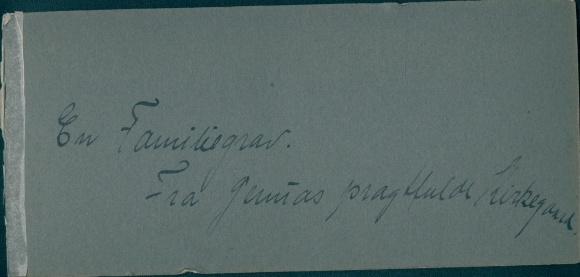 En Familiegrav.
Fra Genuas pragtfulde Kirkegaard.